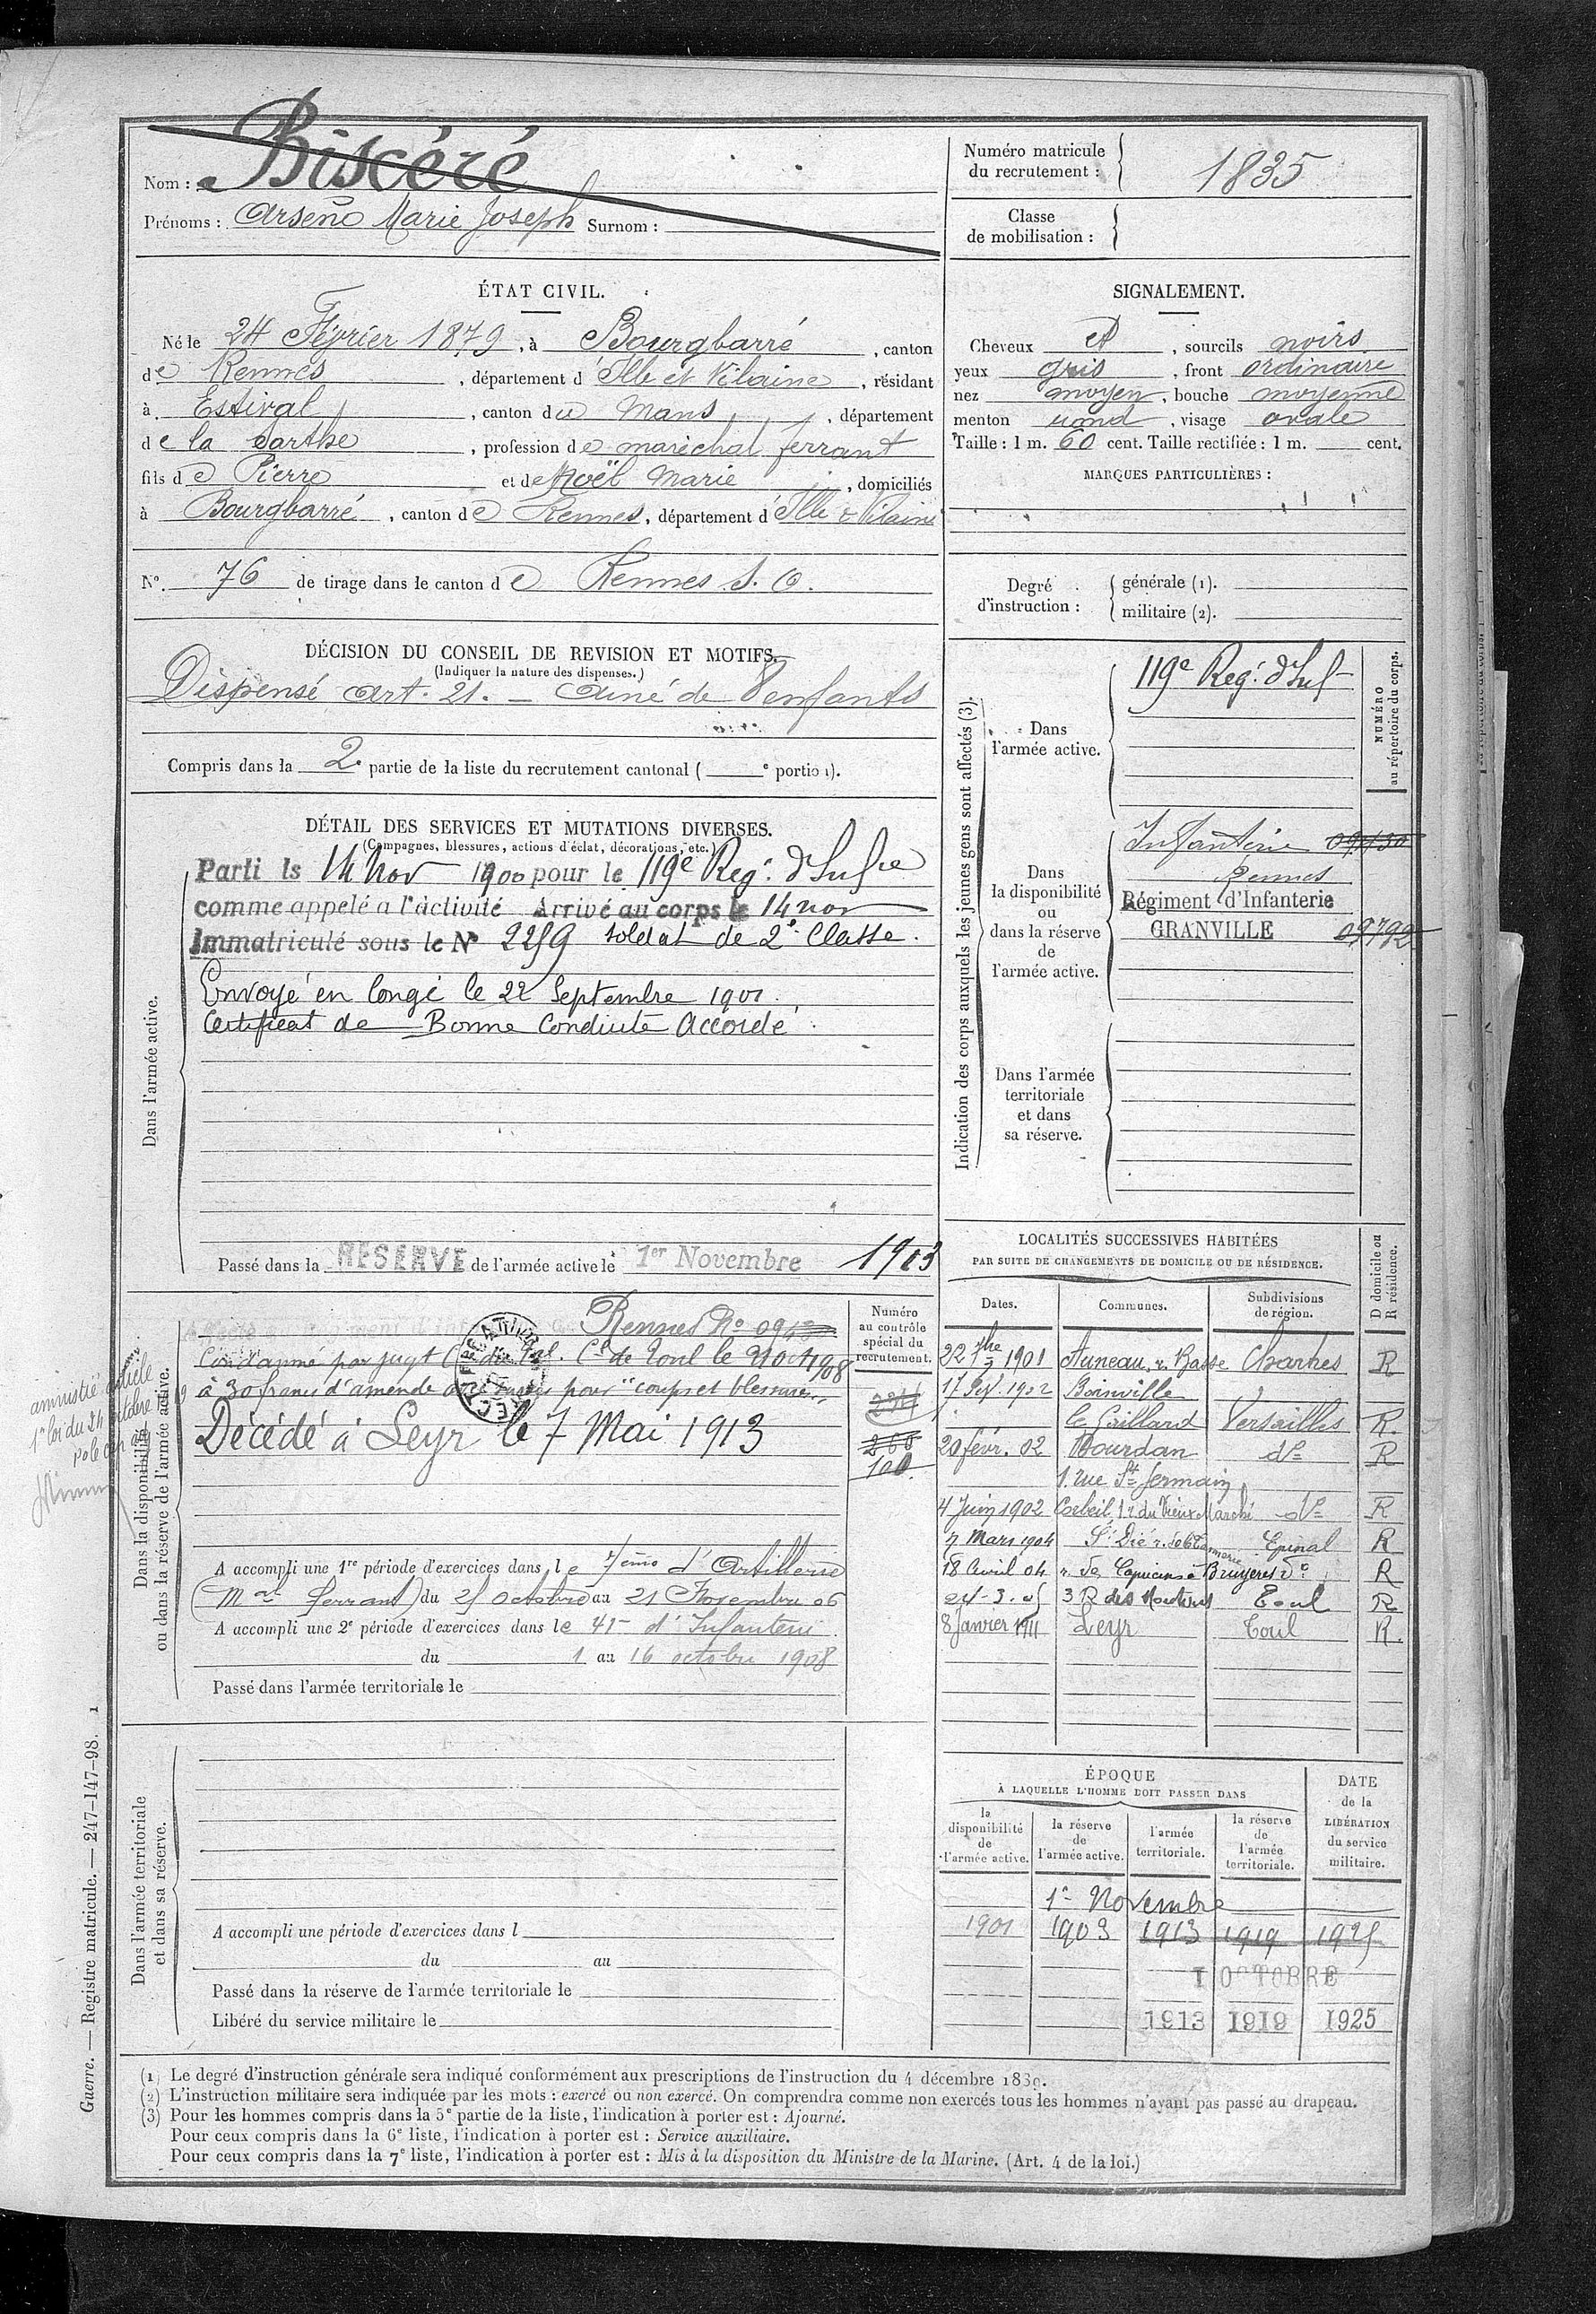 Nom : Biscéré
Prénoms : Arsène Marie Joseph Surnom :
Numéro matricule du recrutement : 1835
Classe de mobilisation :
ÉTAT CIVIL.
Né le 24 Février 1879, à Bourgbarré, canton
de Rennes, département d'Ille et Vilaine, résidant
à Estival, canton du Mans, département
de la Sarthe, profession de maréchal ferrant
fils de Pierre et de Noël Marie, domiciliés
à Bourgbarré, canton de Rennes, département d'Ille & Vilaine
N°. 76 de tirage dans le canton de Rennes S. O.
SIGNALEMENT.
Cheveux et, sourcils noirs
yeux gris, front ordinaire
nez moyen, bouche moyenne
menton rond, visage ovale
Taille : 1 m. 60 cent. Taille rectifiée : 1 m. cent.
MARQUES PARTICULIÈRES :
Degré d'instruction : générale (1).
militaire (2).
DÉCISION DU CONSEIL DE REVISION ET MOTIFS.
(Indiquer la nature des dispenses.)
Dispensé Art. 21. — Ainé de 7 enfants
Compris dans la 2e partie de la liste du recrutement cantonal ( e portion).
DÉTAIL DES SERVICES ET MUTATIONS DIVERSES.
(Campagnes, blessures, actions d'éclat, décorations, etc.)
Dans l'armée active.
Parti le 14 Nov 1900 pour le 119e Reg. d'Infie
comme appelé a l'activité Arrivé au corps le 14 nov
Immatriculé sous le N° 2259 soldat de 2e Classe.
Envoyé en congé le 22 Septembre 1901.
Certificat de Bonne Conduite Accordé.
Passé dans la RESERVE de l'armée active le 1er Novembre 1903
Indication des corps auxquels les jeunes gens sont affectés (3).
NUMÉRO au répertoire du corps.
Dans l'armée active.
119e Reg. d'Inf
Dans la disponibilité ou dans la réserve de l'armée active.
Infanterie 09430
Rennes
Régiment d'Infanterie
GRANVILLE 09792
Dans l'armée territoriale et dans sa réserve.
Dans la disponibilité ou dans la réserve de l'armée active.
Numéro au contrôle spécial du recrutement.
Rennes No 0943
Condamné par jugt Cel de Toul le 21 Oct 1908
à 30 francs d'amende pour "coups et blessures"
Décédé à Leyr le 7 Mai 1913
260
100.
amnistié article
1er loi du 24 octobre 1919
A accompli une 1re période d'exercices dans le 7ème d'Artillerie
(Mal ferrant) du 25 octobre au 21 Novembre 06
A accompli une 2e période d'exercices dans le 41e d'Infanterie
du 1 au 16 octobre 1908
Passé dans l'armée territoriale le
LOCALITÉS SUCCESSIVES HABITÉES
PAR SUITE DE CHANGEMENTS DE DOMICILE OU DE RÉSIDENCE.
D domicile ou R résidence.
Dates. Communes. Subdivisions de région.
22 7bre 1901 Auneau, r. Basse Chartres R
17 1902 Boinville
le Gaillard Versailles R.
20 févr. 02 Dourdan do R
1. rue St Germain
4 Juin 1902 Corbeil, 1 r du Vieux Marché do R
7 Mars 1904 St Dié r. de la Epinal R
18 Avril 04 r. des Capucins à Bruyères do R
24-3.05 3 R des Toul R
8 Janvier 1911 Leyr Toul R.
Dans l'armée territoriale et dans sa réserve.
A accompli une période d'exercices dans l
du au
Passé dans la réserve de l'armée territoriale le
Libéré du service militaire le
ÉPOQUE
À LAQUELLE L'HOMME DOIT PASSER DANS
DATE de la LIBÉRATION du service militaire.
la disponibilité de l'armée active. la réserve de l'armée active. l'armée territoriale. la réserve de l'armée territoriale.
1er Novembre
1901 1903 1913 1919 1925
1 OCTOBRE
1913 1919 1925
(1) Le degré d'instruction générale sera indiqué conformément aux prescriptions de l'instruction du 4 décembre 1889.
(2) L'instruction militaire sera indiquée par les mots : exercé ou non exercé. On comprendra comme non exercés tous les hommes n'ayant pas passé au drapeau.
(3) Pour les hommes compris dans la 5e partie de la liste, l'indication à porter est : Ajourné.
Pour ceux compris dans la 6e liste, l'indication à porter est : Service auxiliaire.
Pour ceux compris dans la 7e liste, l'indication à porter est : Mis à la disposition du Ministre de la Marine. (Art. 4 de la loi.)
Guerre. — Registre matricule. — 247-147-98. 1